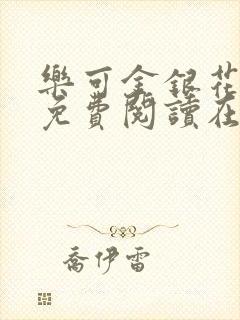 樂可金銀花
免費閱讀在
喬伊雷